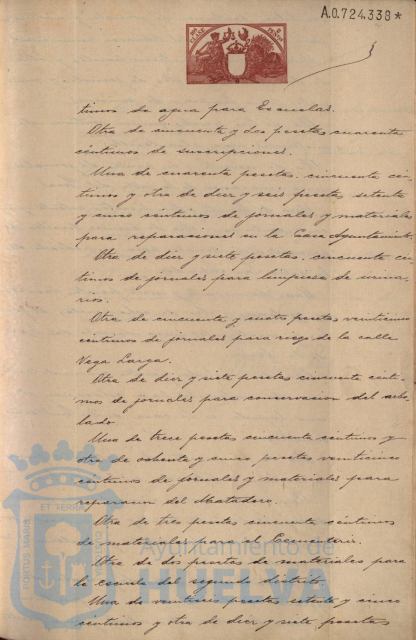 A.0.724.338*
timos de agua para Escuelas.
Otra de cincuenta y dos pesetas cuarenta
céntimos de suscripciones.
Una de cuarenta pesetas cincuenta cén-
timos y otra de diez y seis pesetas setenta
y cinco céntimos de jornales y materiales
para reparaciones en la Casa Ayuntamiento
Otra de diez y siete pesetas cincuenta cén-
timos de jornales para limpieza de urina-
rios.
Otra de cincuenta y cuatro pesetas veinticinco
céntimos de jornales para riego de la calle
Vega Larga.
Otra de diez y siete pesetas cincuenta cénti-
mos de jornales para conservacion del arbo-
lado
Una de trece pesetas cincuenta céntimos y
otra de ochenta y cinco pesetas veinticinco
céntimos de jornales y materiales para
reparacion del Matadero.
Otra de tres pesetas cincuenta céntimos
de materiales para el Cementerio.
Otra de dos pesetas de materiales para
la escuela del segundo distrito
Una de veintiseis pesetas setenta y cinco
céntimos y otra de diez y siete pesetas
Ayuntamiento de
HUELVA